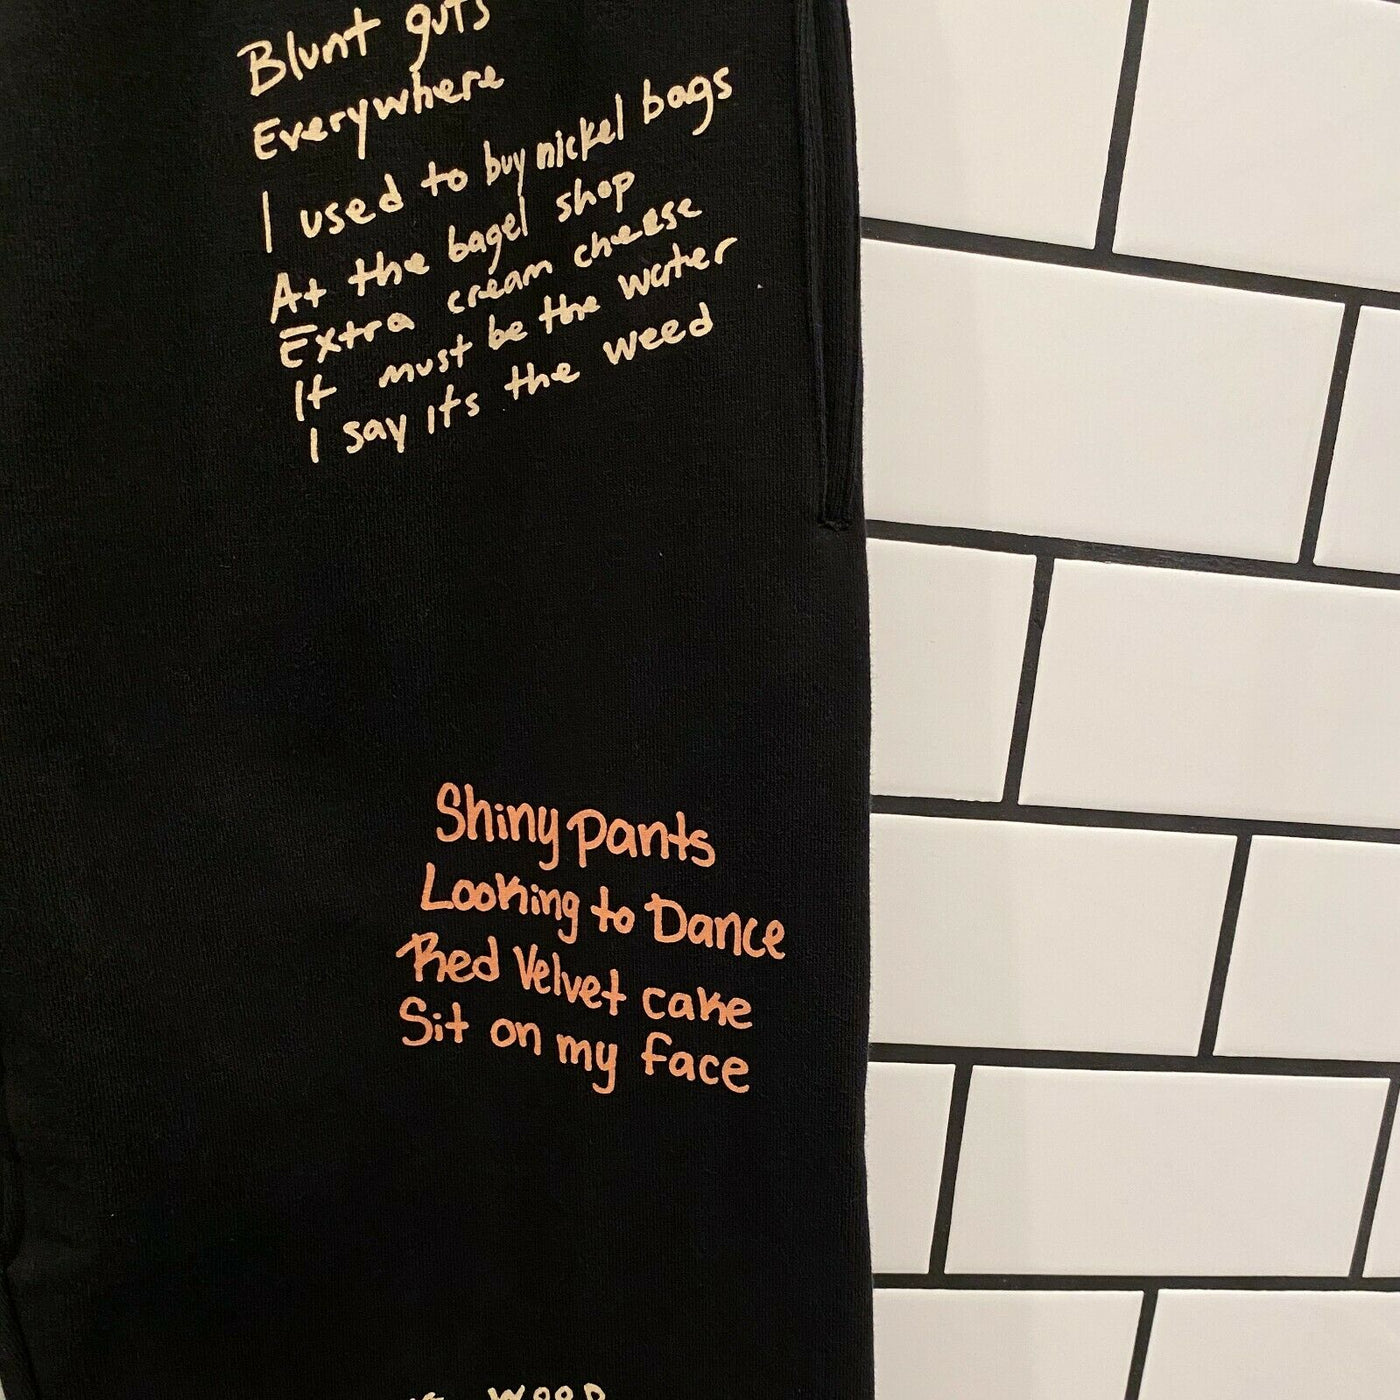 Blunt guts
Everywhere
I used to buy nickel bags
At the bagel shop
Extra cream cheese
It must be the water
I say it's the weed
Shiny pants
Looking to Dance
Red Velvet cake
Sit on my face